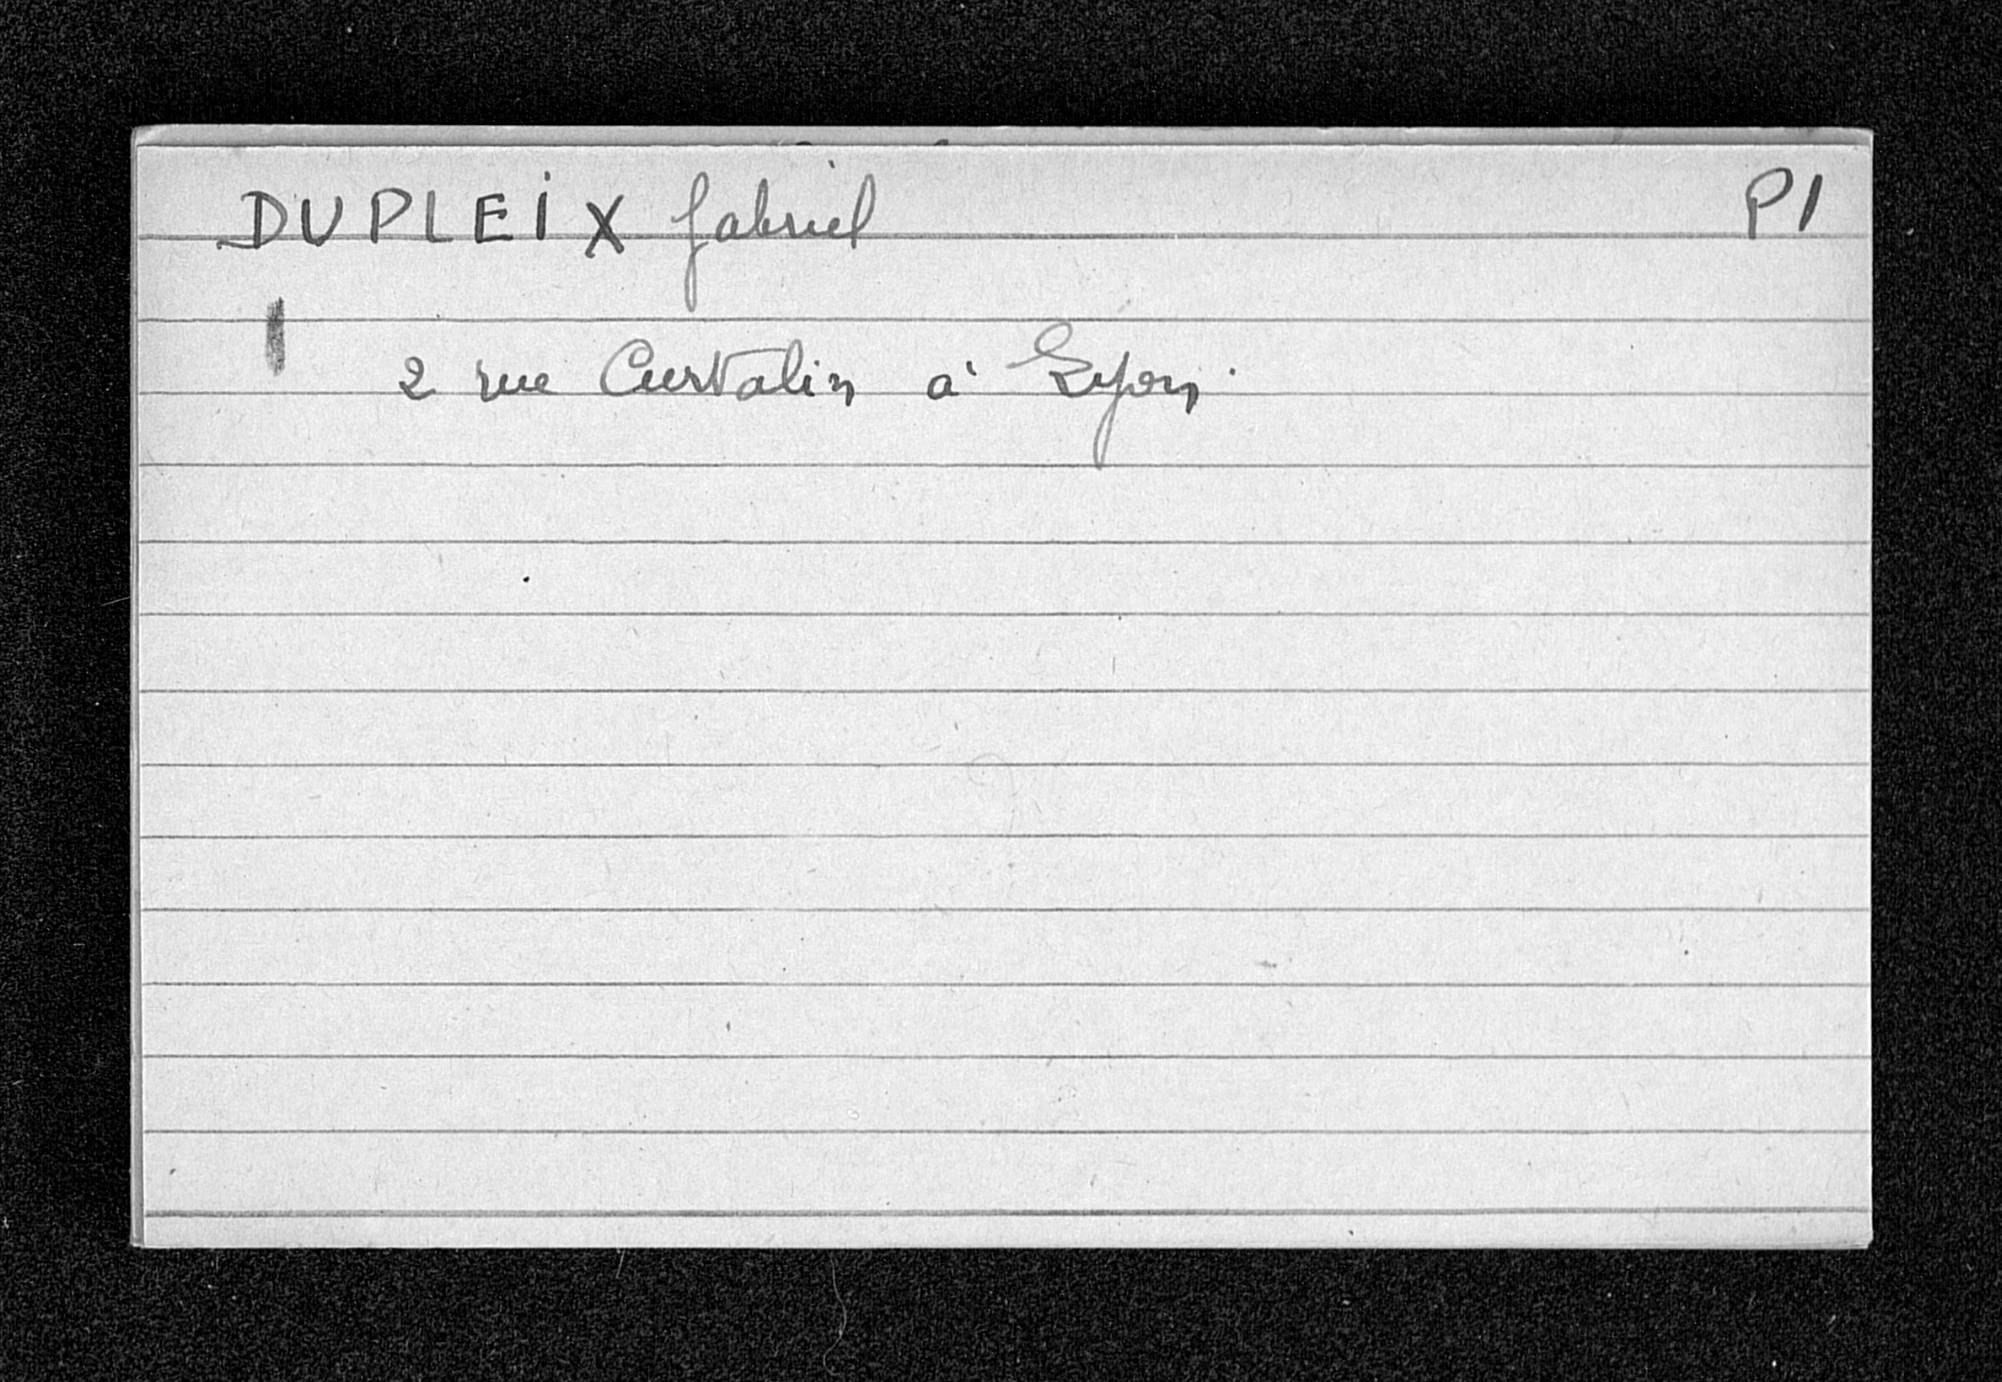 DUPLEIX Gabriel P1
2 rue Curtalin à Lyon.